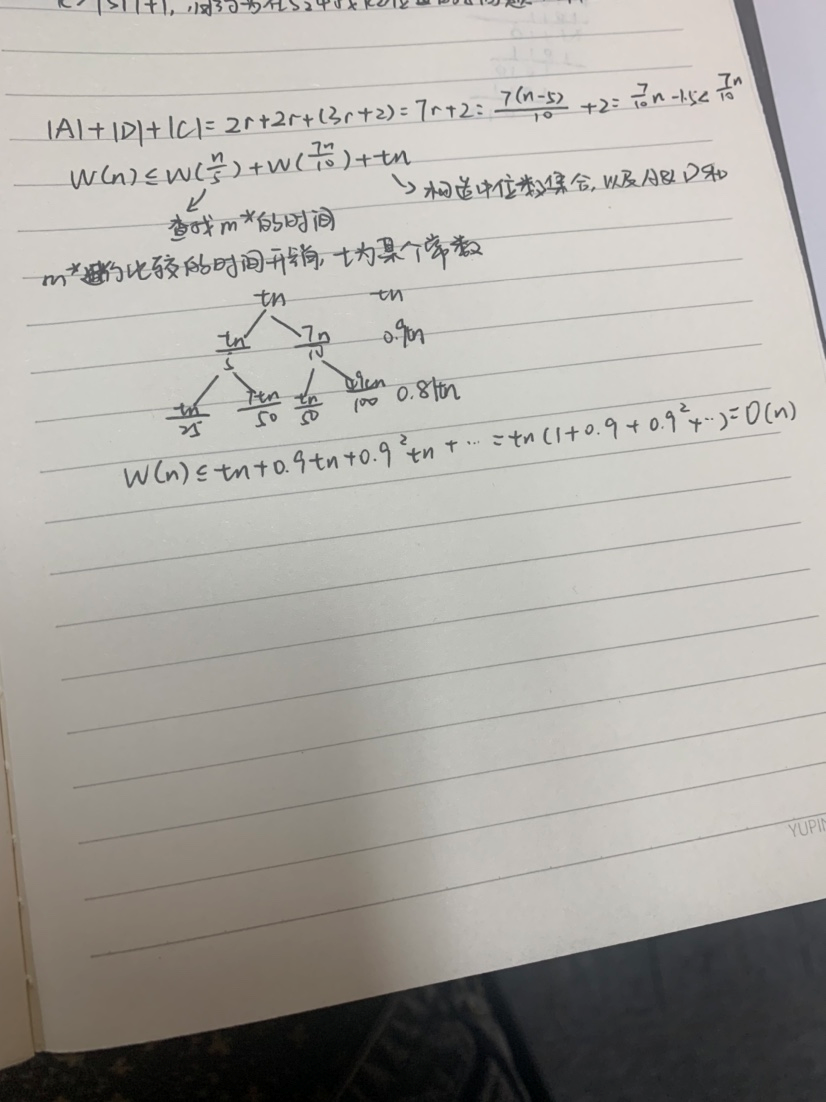 |A|+|D|+|C|= 2r+2r+(3r+2)= 7r+2= 7(n-5)/10 +2= 7/10 n -1.5< 7n/10
W(n)≤W(n/5)+W(7n/10)+tn
构造中位数集合,以及A&D和
查找m*的时间
m* 比较的时间开销, t为某个常数
tn tn
tn/5 7n/10 0.9tn
tn/25 7tn/50 7tn/50 49tn/100 0.81tn
W(n)≤tn+0.9tn+0.9²tn+… =tn(1+0.9+0.9²+…)=O(n)
YUPIN